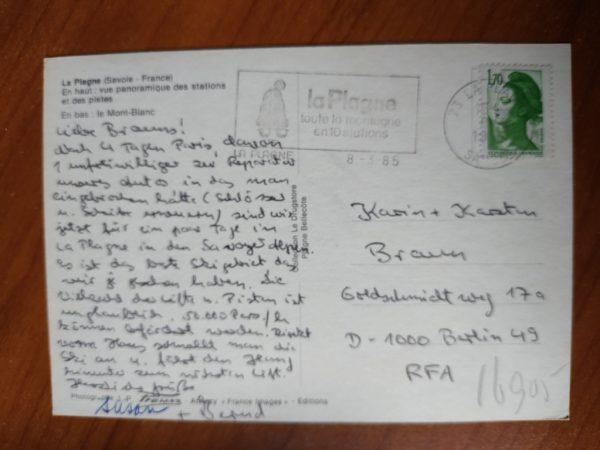 La Plagne (Savoie - France)
En haut : vue panoramique des stations
et des pistes
En bas : le Mont-Blanc
Liebe Brauns!
nach 4 Tagen Paris, davon
1 unfreiwilliger zur Reparatur
unseres Autos in das man
eingebrochen hatte (Schlösser
u. Scheibe erneuern) sind wir
jetzt für ein paar Tage in
La Plagne in den Savoyer Alpen.
Es ist das beste Skigebiet das
wir je gesehen haben. Die
Vielzahl der Lifte u. Pisten ist
unglaublich. 50.000 Pers./h
können befördert werden. Direkt
vorm Haus schnallt man die
Ski an u. fährt den
zum nächsten Lift.
Herzliche Grüße
Susan
+ Bernd
Photographie J.-P. - Annecy « France Images » - Editions
Collection Le Drugstore
Plagne Bellecôte
la Plagne
toute la montagne
en 10 stations
LA PLAGNE
8-3-85
73 LA
1,70
Karin + Karsten
Braun
Goldschmidtweg 17a
D-1000 Berlin 49
RFA
16905